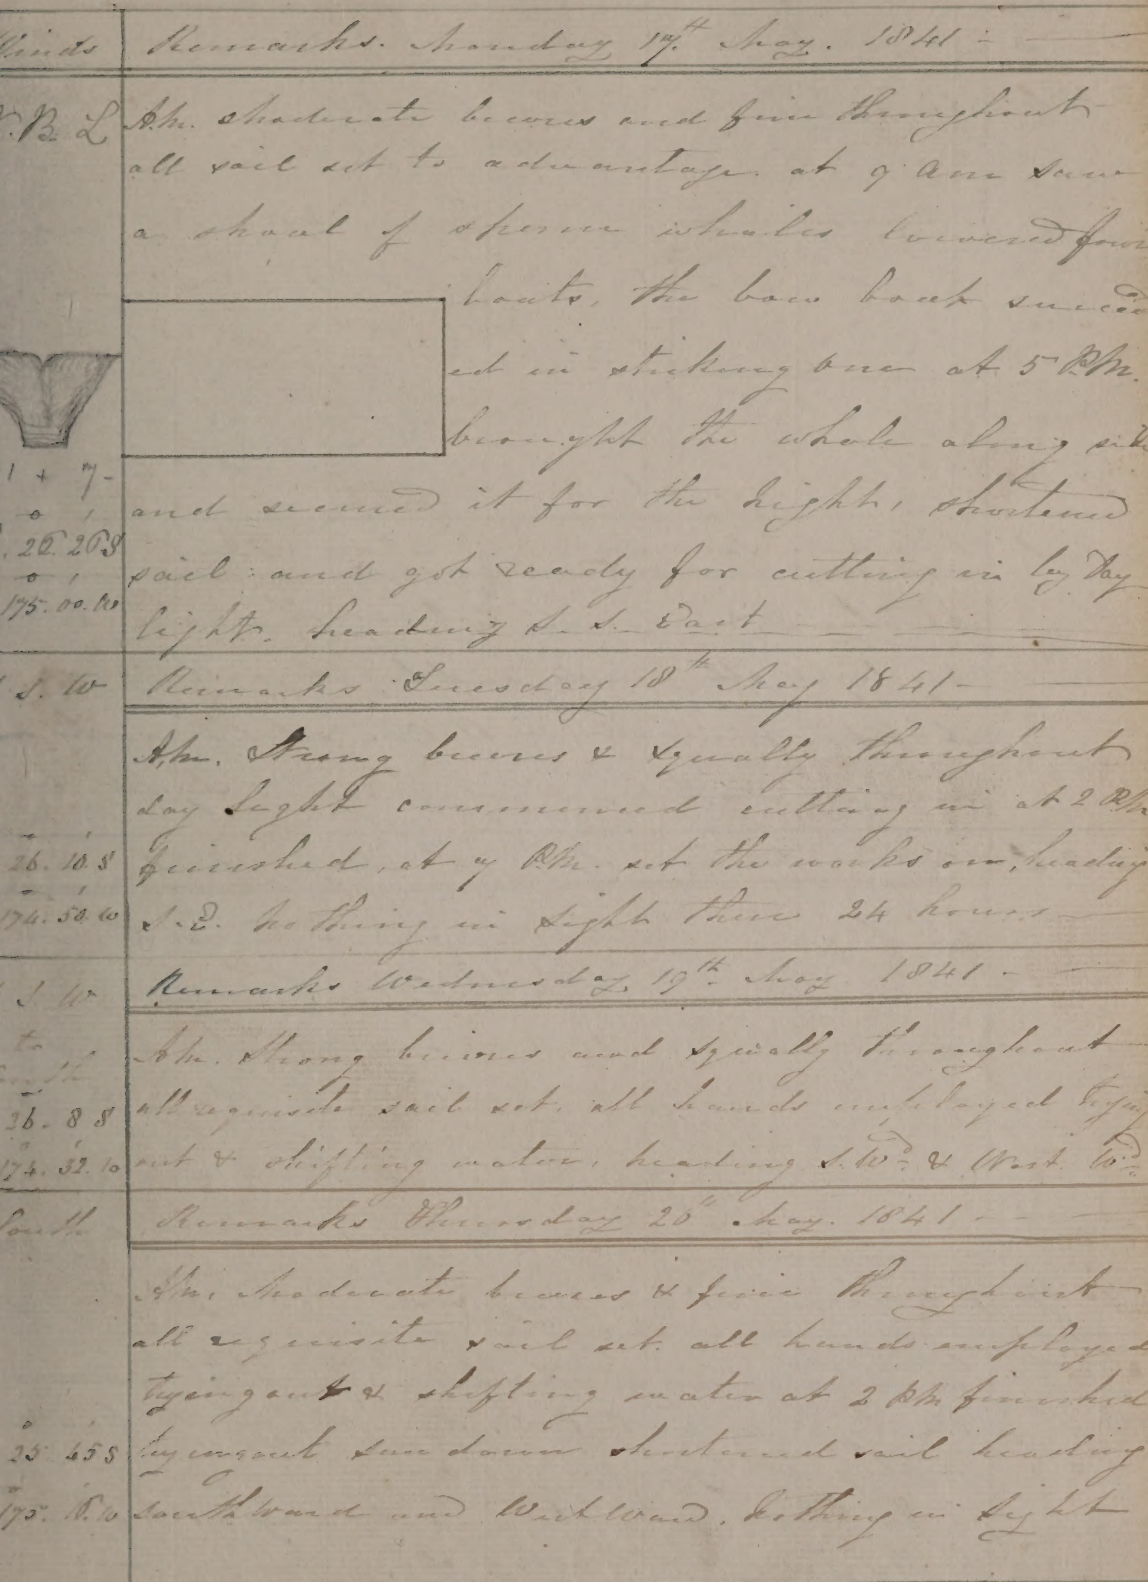 Winds Remarks. Monday 17th May. 1841
B. L A.m. Moderate breezes and fine throughout
all sail set to advantage. at 9 am saw
a shoal of sperm whales lowered four
boats, the bow boat succeed
ed in striking one at 5 P.M.
brought the whale along side
1 + 7
and secured it for the Night, shortened
26. 26 S
sail and got ready for cutting in by Day
175. 00. W
light. heading S. S. East
S. W Remarks Tuesday 18th May 1841
A.m. Strong breezes & Squally throughout
day light commenced cutting in at 2 P.M
26. 10. S finished, at 7 P.M. set the works on, heading
174. 50. W S. E. Nothing in Sight these 24 hours
S. W Remarks Wednesday 19th May 1841
to
A.m. Strong breezes and Squally throughout
26. 8 S all requisite sail set, all hands employed trying
174. 32. W out & shifting water, heading S. Wd & West Wd
South Remarks Thursday 20th May. 1841
A.m. Moderate breezes & fine throughout
all requisite sail set. all hands employed
trying out & shifting water at 2 P.M finished
25 45 S trying out sun down shortened sail heading
175. W southward and Westward. Nothing in Sight